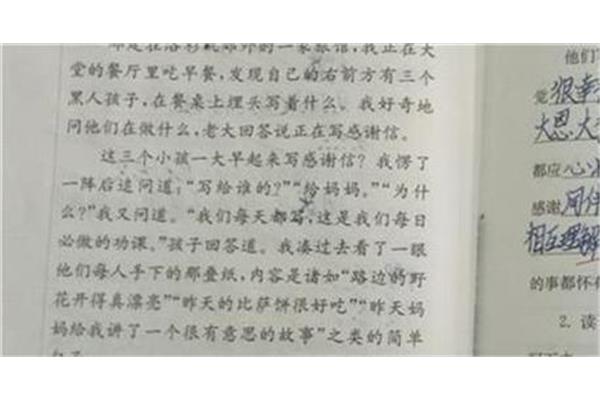 那是在洛杉矶郊外的一家旅馆,我正在大
堂的餐厅里吃早餐,发现自己的右前方有三个
黑人孩子,在餐桌上埋头写着什么。我好奇地
问他们在做什么,老大回答说正在写感谢信。
这三个小孩一大早起来写感谢信?我愣了
一阵后追问道:“写给谁的?”“给妈妈。”“为什
么?”我又问道。“我们每天都写,这是我们每日
必做的功课。”孩子回答道。我凑过去看了一眼
他们每人手下的那叠纸,内容是诸如“路边的野
花开得真漂亮”“昨天的比萨饼很好吃”“昨天妈
妈给我讲了一个很有意思的故事”之类的简单
他们
觉 很幸
大恩大
都应 心
感谢 同伴
相互理解
的事都怀
2. 读